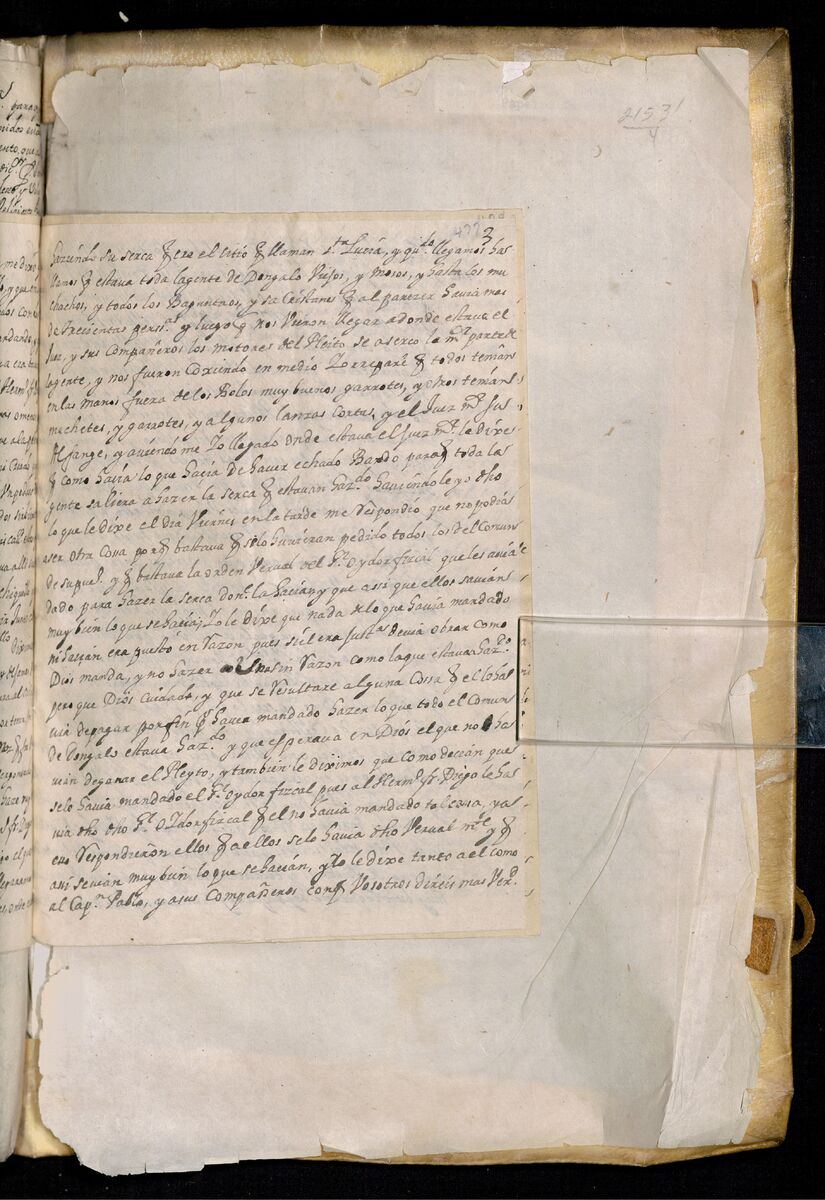 21531
4
477 3
haziendo su serca q̃ era el sitio q̃ llaman S.ta Lucia, y qu.do llegamos ha
llamos q̃ estava toda la gente de Dongalo viejos, y mosos, y hasta los mu
chachos, y todos los Baguntaos, y sa Cristanes q̃ al parezer havia mas
de trecientas pers.as y luego q̃ nos vieron llegar a donde estava el
Juez, y sus Compañeros los motores del Pleito se aserco la m.or parte de
lagente, y nos fueron Coxiendo en medio Yo rrepare q̃ todos teniãn
en las manos fuera de los Bolos muy buenos garrotes, y otros teniãn
machetes, y garrotes, y algunos lanzas cortas, y el Juez m.or sus
Alfange, y aviendo me Yo llegado onde estava el Juez m.or le dixe
q̃ como havia lo que hacia de haver echado Bando para q̃ toda la
gente saliera a hazer la serca q̃ estavan haz.do haviendole yo dho
lo que le dixe el dia Viernes en la tarde me Respondio que no podia
aser otra Cosa por q̃ bastava q̃ selo huvieran pedido todos los del Comun
de su pue.o y q̃ bastava la orden Verval del S.r Oydor fizcal que les avia
dado para hazer la serca don.e la hacian y que assi que ellos savian
muy bien lo que se hacia; Yo le dixe que nada de lo que havia mandado
ni hacian era puesto en Razon pues si el era Just.a devia obrar como
Dios manda, y no hazer sin Razon como la que estava haz.do
pero que Dios Cuidado, y que se Resultare alguna Cossa q̃ el lo ha
via de pagar por fin p.r haver mandado hazer lo que todo el Comun
de Dongalo estava haz.do y que esperava en Dios el que no ha
vian de ganar el Pleyto, y tambien le diximos que como decian que
selo havia mandado el S.r Oydor fizcal pues al Herm.o fr Diego le ha
via dho dho S.r Oydor fizcal q̃ el no havia mandado tal cosa, y a
eso Respondieron ellos q̃ a ellos selo havia dho Verval m.te y q̃
asi sevian muy bien lo que se hacian, y Yo le dixe tanto a el como
al Cap.n Pablo, y a sus Compañeros con q̃ Vosotros direis mas Ver.d